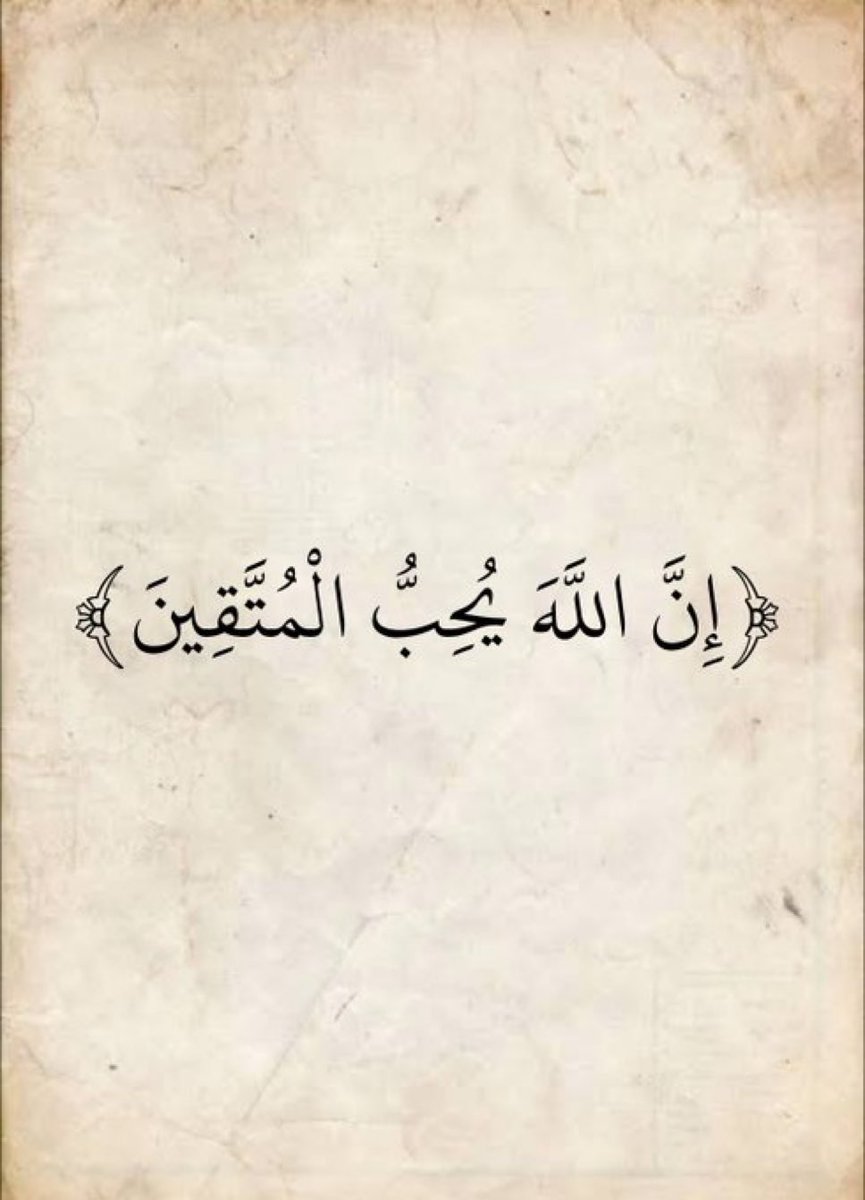 ﴿إِنَّ اللَّهَ يُحِبُّ الْمُتَّقِينَ﴾